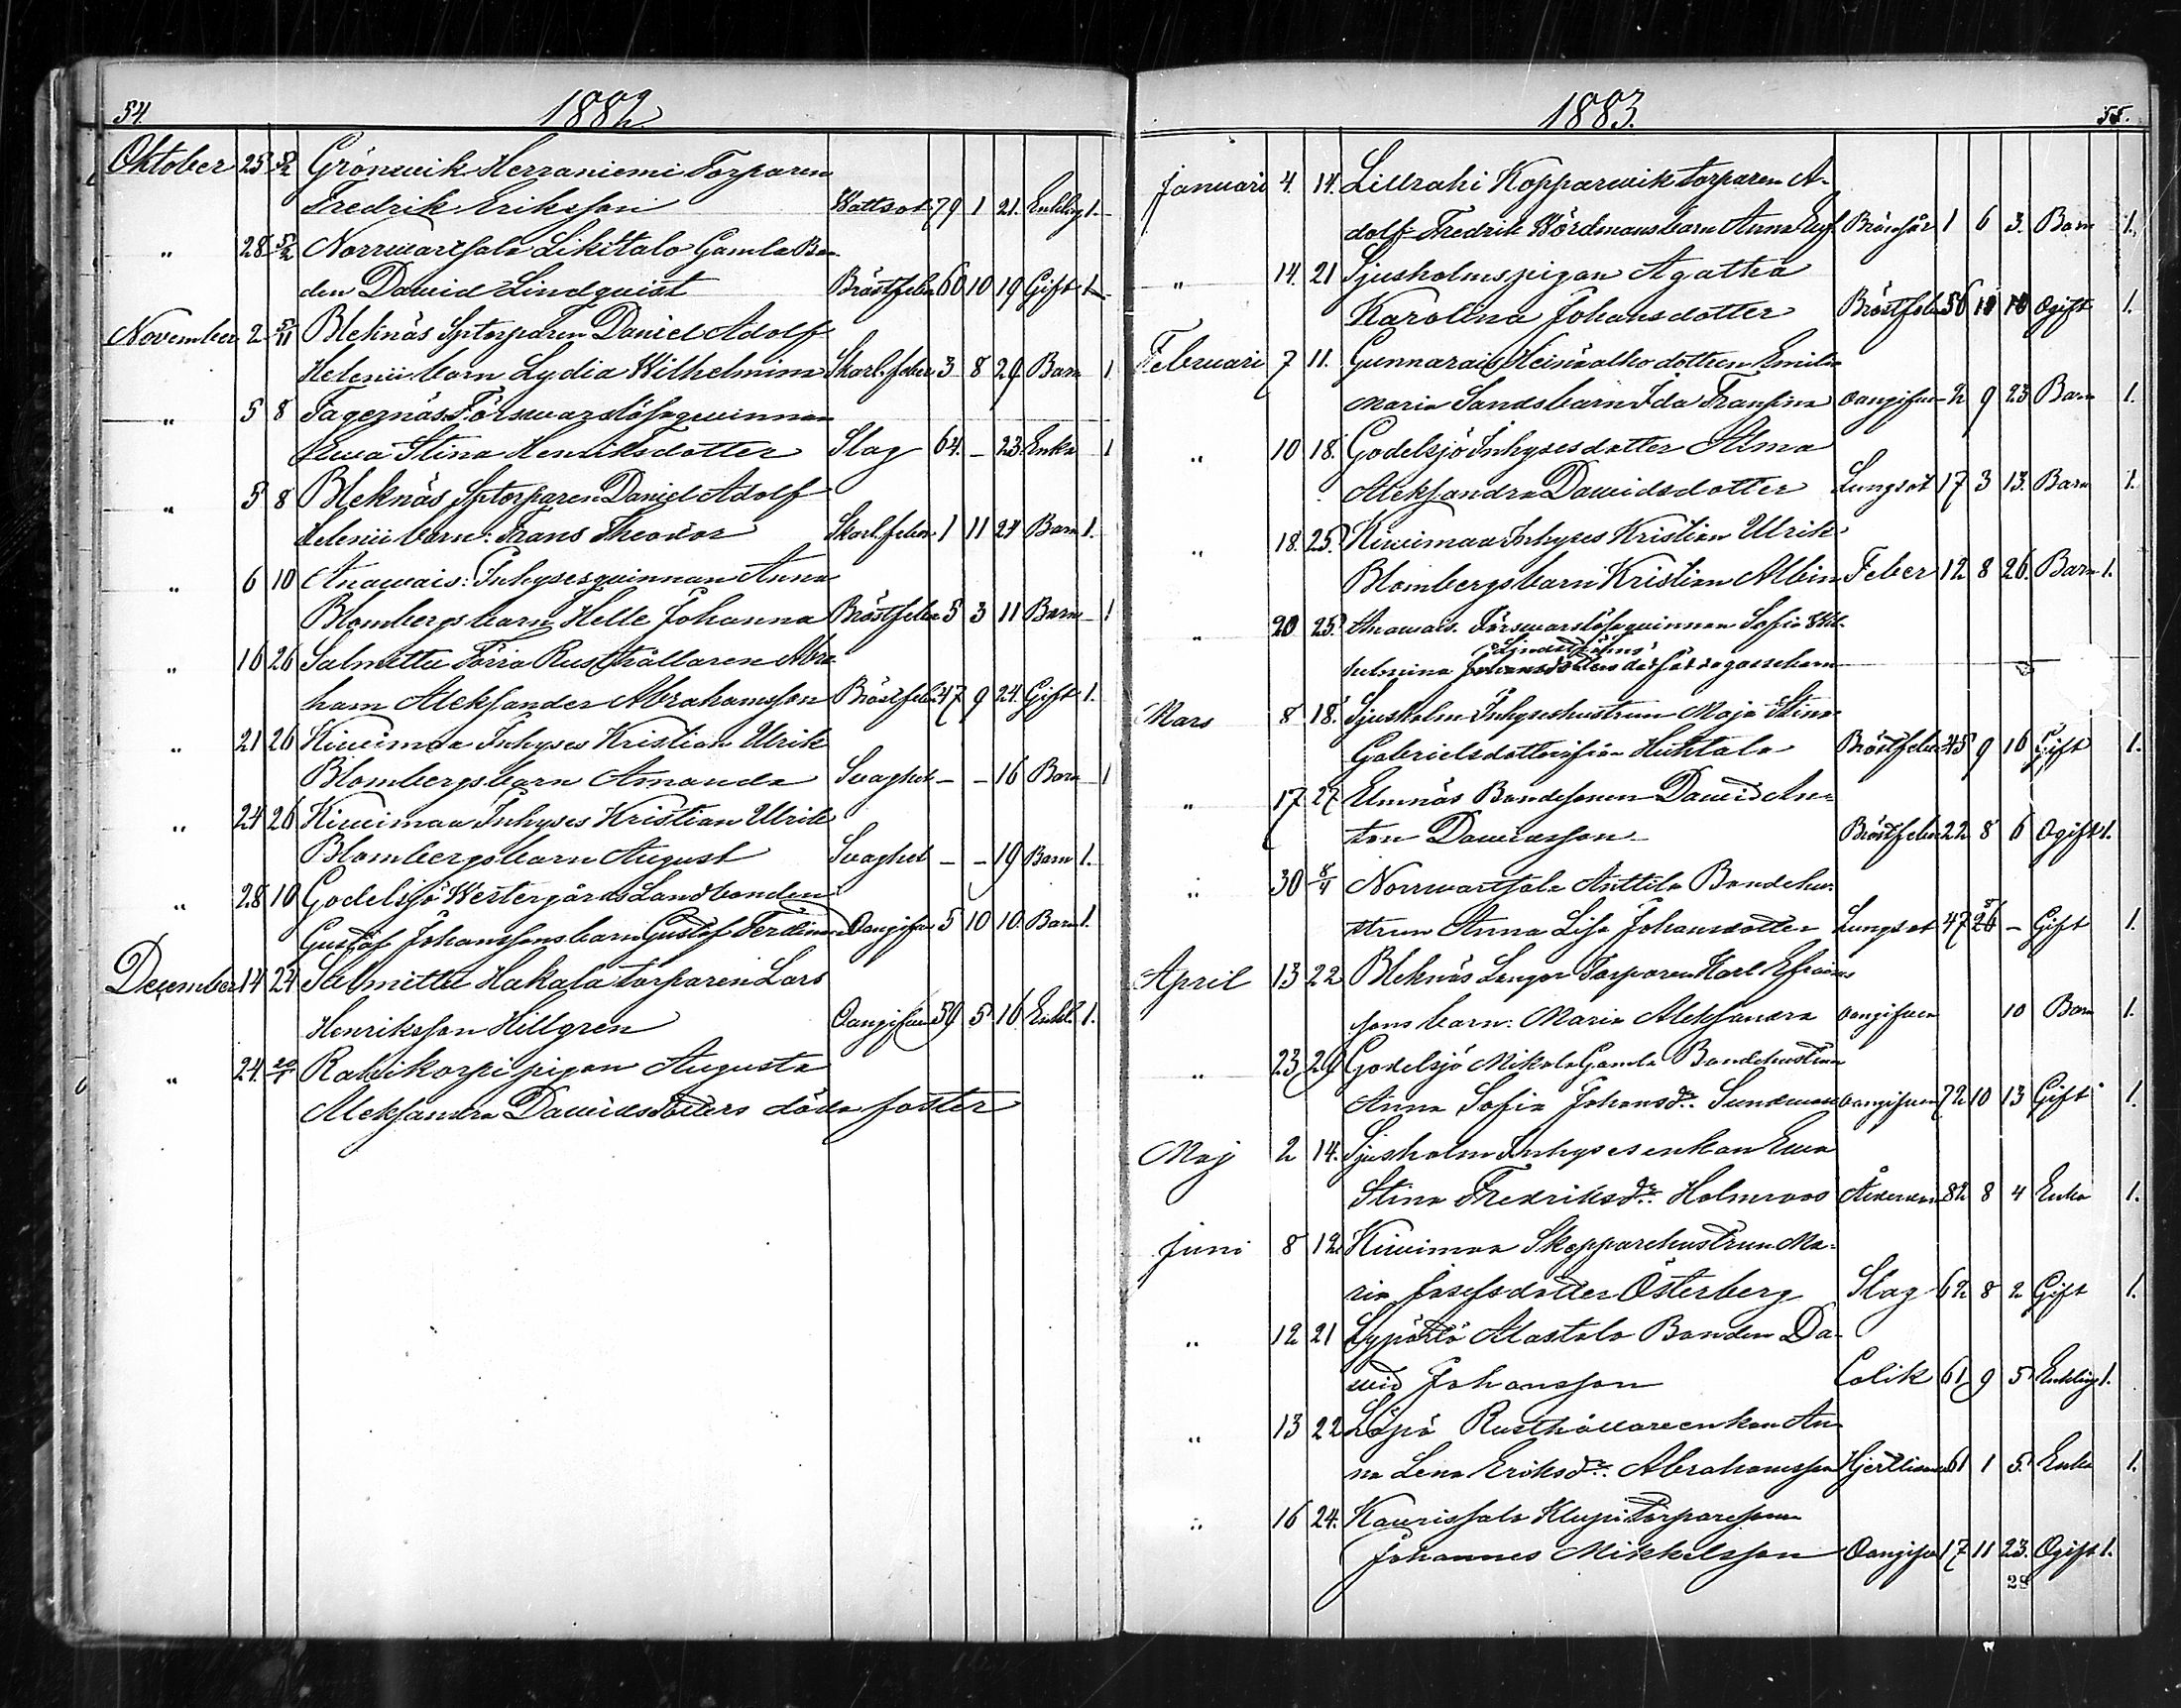 54.
1882.
Oktober 25 5/12 Grönwik Herraniemi Torparen
Fredrik Eriksson Wattsot 79 1 21. Enkling 1.
" 28 5/12 Norrwartsala Likitalo Gamla Bon
den Dawid Lindqvist Bröstfeber 60 10 19 Gift 1
November 2 5/11 Bleknäs Sptorparen Daniel Adolf
Helenii barn Lydia Wilhelmina Skarl.feber 3 8 29 Barn 1
" 5 8 Fagernäs Förswarslösqwinnan
Ewa Stina Henriksdotter Slag 64. – 23. Enka 1
" 5 8 Bleknäs Sptorparen Daniel Adolf
Helenii barn: Frans Theodor Skarl.feber 1 11 24 Barn 1.
" 6 10 Anawais: Inhysesqwinnan Anna
Blombergs barn Helle Johanna Bröstfeber 5 3 11 Barn 1
" 16 26 Salmittu Rusthållaren Abra
ham Aleksander Abrahamsson Bröstfeber 47 9 24. Gift 1.
" 21 26 Kiwimaa Inhyses Kristian Ulrik
Blombergs barn Amanda Svaghet – – 16 Barn 1
" 24 26 Kiwimaa Inhyses Kristian Ulrik
Blombergs barn August Svaghet – – 19 Barn 1.
" 28 10 Godelsjö Westergårds Landbonden
Gustaf Johanssons barn Gustaf Ferdinand Oangifven 5 10 10. Barn 1.
December 14 24 Salmittu Hakala torparen Lars
Henriksson Hillgren Oangifven 59 5 16 Enkl. 1.
" 24. Rahikorpi pigan Augusta
Aleksandra Dawidsdotters döda foster
1883.
55.
Januari 4. 14. Lillrahi Kopparwik torparen A-
dolf Fredrik Hördmans barn Anna 1 6 3. Barn 1.
" 14. 21 Sjusholms pigan Agatha
Karolina Johansdotter Bröstfeber 56 Ogift 1.
Februari 7 11. Gunnarais Heinäalho dottren Emilia
Maria Sands barn Ida Oangifven – 2 9 23 Barn 1.
" 10 18. Godelsjö Inhysesdotter Alma
Aleksandra Dawidsdotter Lungsot 17 3 13. Barn 1.
" 18. 25. Kiwimaa Inhyses Kristian Ulrik
Blombergs barn Kristian Albin Feber 12 8 26. Barn 1.
" 20 25. Anawais. Förswarslösqwinnan Sofia Wil-
Lindströms
helmina Johansdotters dödfödda gossebarn
Mars 8 18. Sjusholm Inhyseshustrun Maja Stina
Gabrielsdotter ifrån Huhtala Bröstfeber 45 9 16 Gift 1.
" 17 27 Elmnäs Bondesonen Dawid An-
ton Dawidsson Bröstfeber 22 8 6 Ogift 1.
" 30 8/4 Norrwartsala Anttila Bondehu-
strun Anna Lisa Johansdotter Lungsot 47 – Gift 1.
April 13 22 Bleknäs Torparen Karl Efraims
sons barn: Maria Aleksandra Oangifven 10 Barn 1.
" 23 29 Godelsjö Mikola Gamla Bondehustrun
Anna Sofia Johansdr. Sundman Oangifven 72 10 13 Gift 1.
Maj 2 14. Sjusholm Inhyses enkan Ewa
Stina Fredriksdr. Holmroos Ålderdom 82 8 4 Enka 1.
Juni 8 12 Kiwimaa Skepparehustrun Ma-
ria Josefsdotter Österberg Slag 62 8 2 Gift 1.
" 12 21 Lypärtö Alastalo Bonden Da-
wid Johansson Colik 61 9 5 Enkling 1.
" 13 22 Löpö Rusthållareenkan An-
na Lena Eriksdr. Abrahamsson 61 1 5. Enka 1.
" 16 24. Kaurissalo Klupi Torparesonen
Johannes Mikkelsson Oangifven 17 11 23. Ogift 1.
28